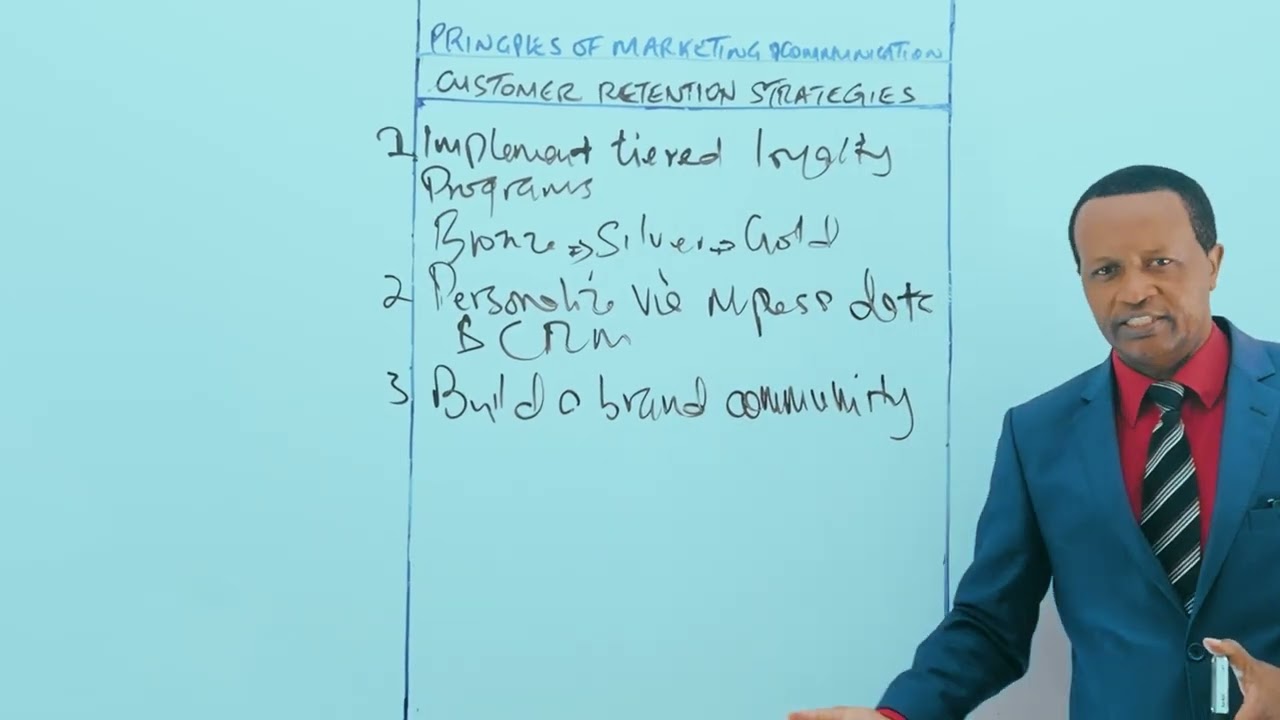 PRINCIPLES OF MARKETING & COMMUNICATION
CUSTOMER RETENTION STRATEGIES
1 Implement tiered loyalty
Programs
Bronze => Silver => Gold
2 Personalize via Mpesa data
& CRM
3 Build a brand community